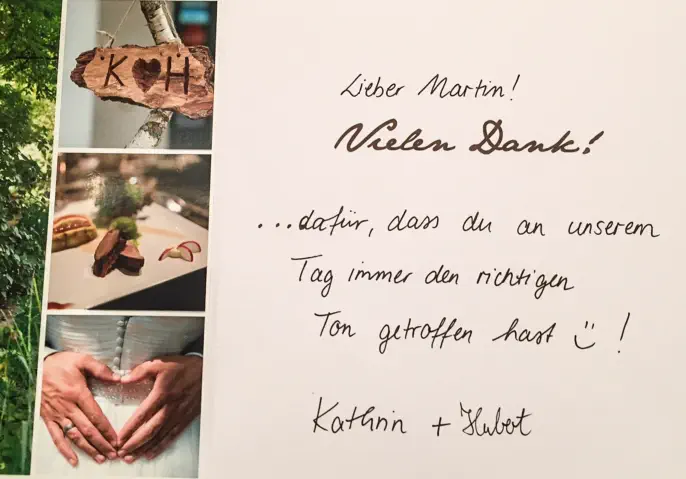 K ♥ H
Lieber Martin!
Vielen Dank!
...dafür, dass du an unserem
Tag immer den richtigen
Ton getroffen hast :) !
Kathrin + Hubert